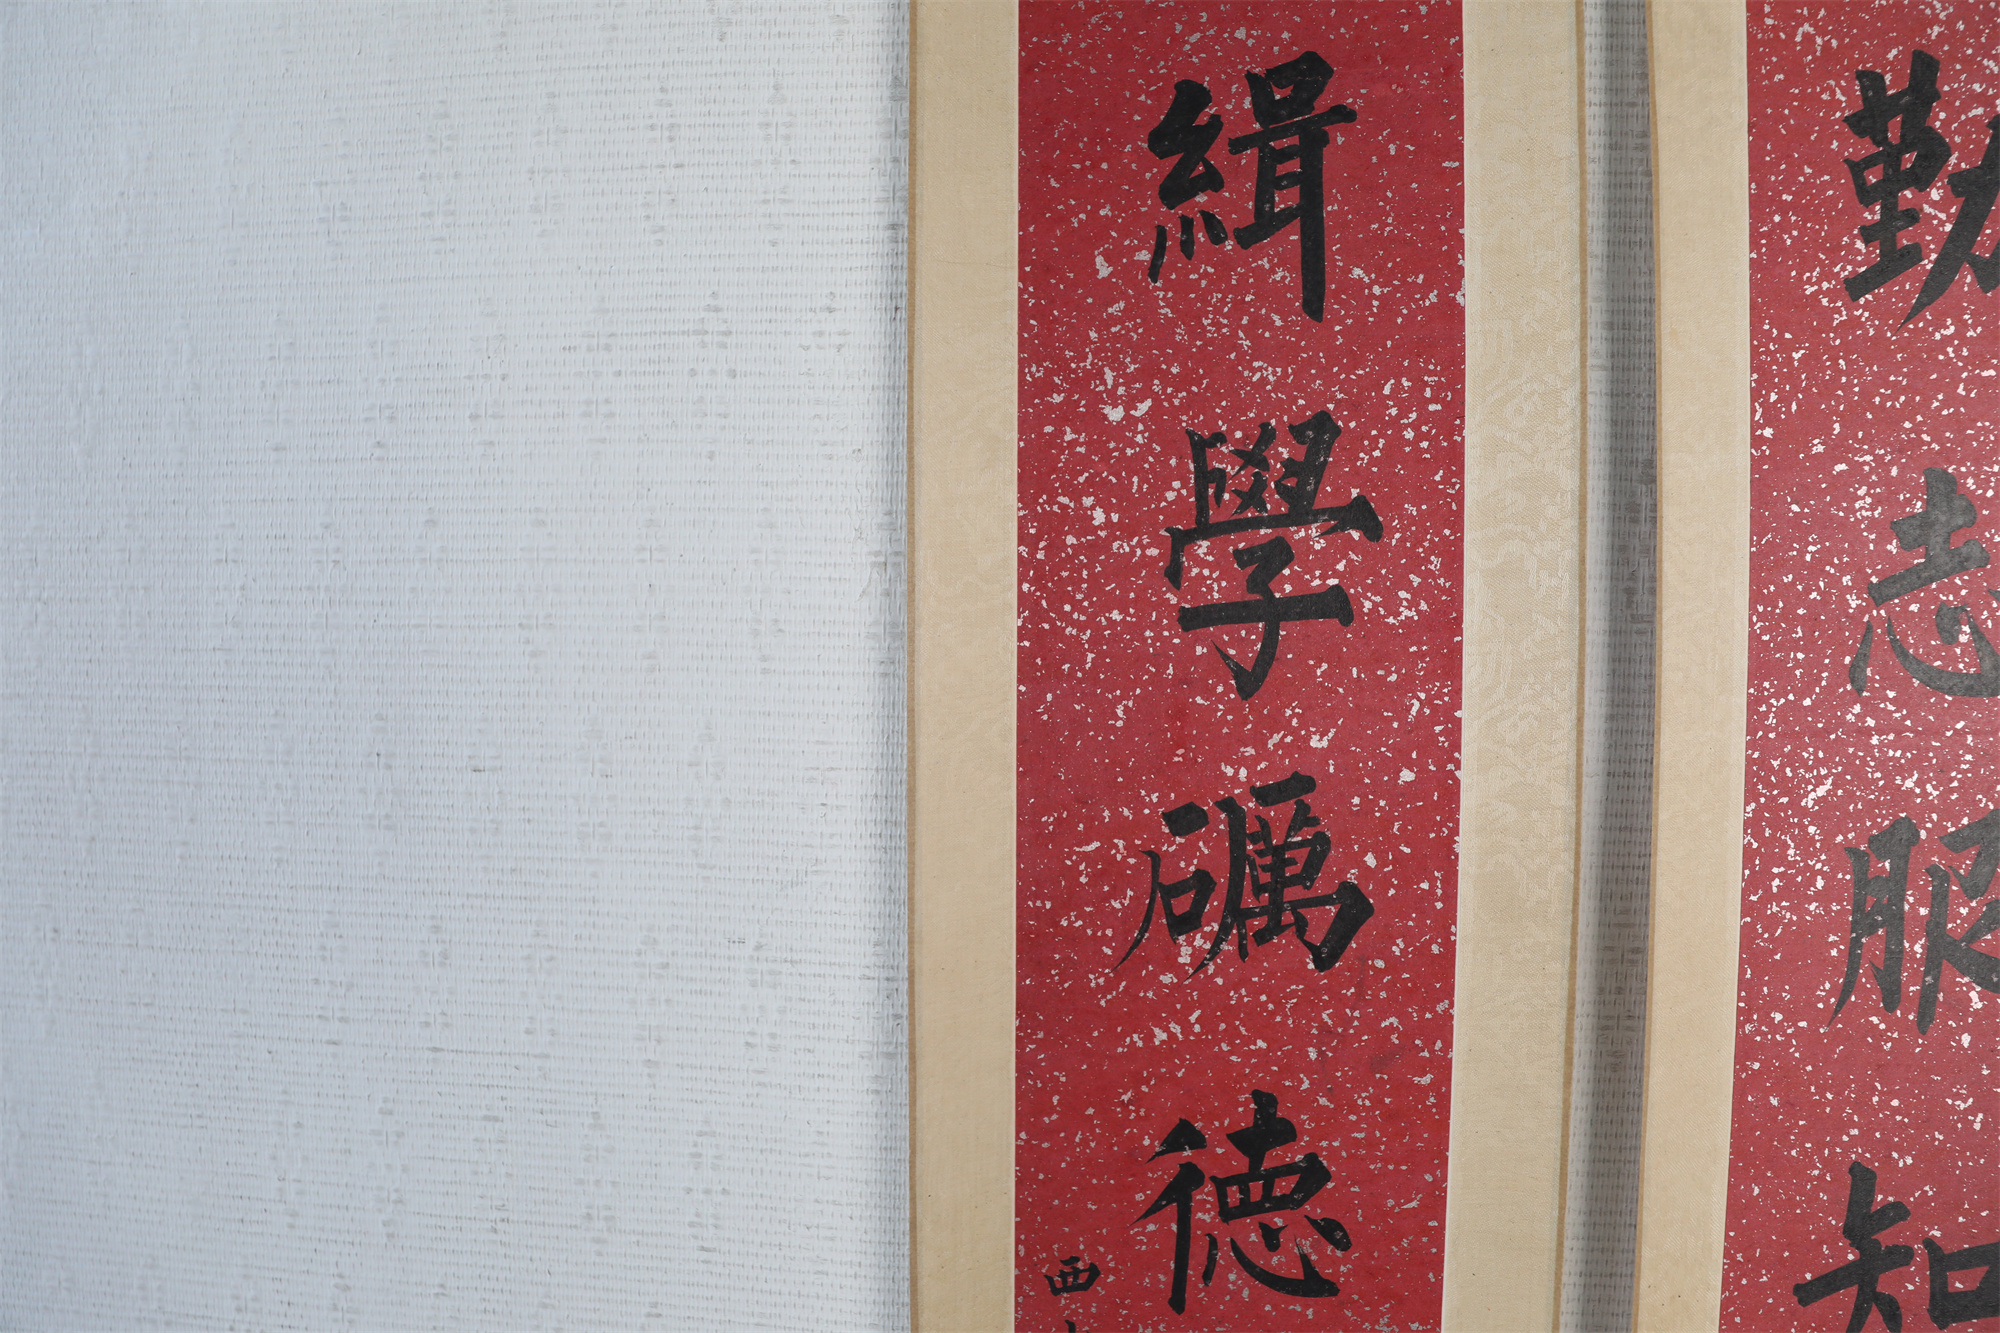 勤志服知
緝學礪德
西